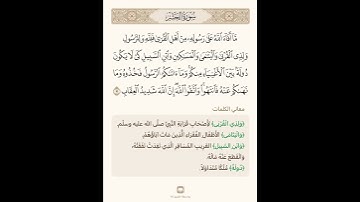 سُورَةُ الحَشۡرِ
مَّآ أَفَآءَ ٱللَّهُ عَلَىٰ رَسُولِهِۦ مِنۡ أَهۡلِ ٱلۡقُرَىٰ فَلِلَّهِ وَلِلرَّسُولِ
وَلِذِي ٱلۡقُرۡبَىٰ وَٱلۡيَتَٰمَىٰ وَٱلۡمَسَٰكِينِ وَٱبۡنِ ٱلسَّبِيلِ كَيۡ لَا يَكُونَ
دُولَةَۢ بَيۡنَ ٱلۡأَغۡنِيَآءِ مِنكُمۡۚ وَمَآ ءَاتَىٰكُمُ ٱلرَّسُولُ فَخُذُوهُ وَمَا
نَهَىٰكُمۡ عَنۡهُ فَٱنتَهُواْۚ وَٱتَّقُواْ ٱللَّهَۖ إِنَّ ٱللَّهَ شَدِيدُ ٱلۡعِقَابِ ٧
معاني الكلمات
﴿وَلِذِي الْقُرْبَى﴾ لِأَصْحَابِ قَرَابَةِ النَّبِيِّ صلى الله عليه وسلم.
﴿وَالْيَتَامَى﴾ الأَطْفَالِ الْفُقَرَاءِ الَّذِينَ مَاتَ آبَاؤُهُمْ.
﴿وَابْنِ السَّبِيلِ﴾ الْغَرِيبِ الْمُسَافِرِ الَّذِي نَفِدَتْ نَفَقَتُهُ،
وَانْقَطَعَ عَنْهُ مَالُهُ.
﴿دُولَةً﴾ مُلْكًا مُتَدَاوَلًا.